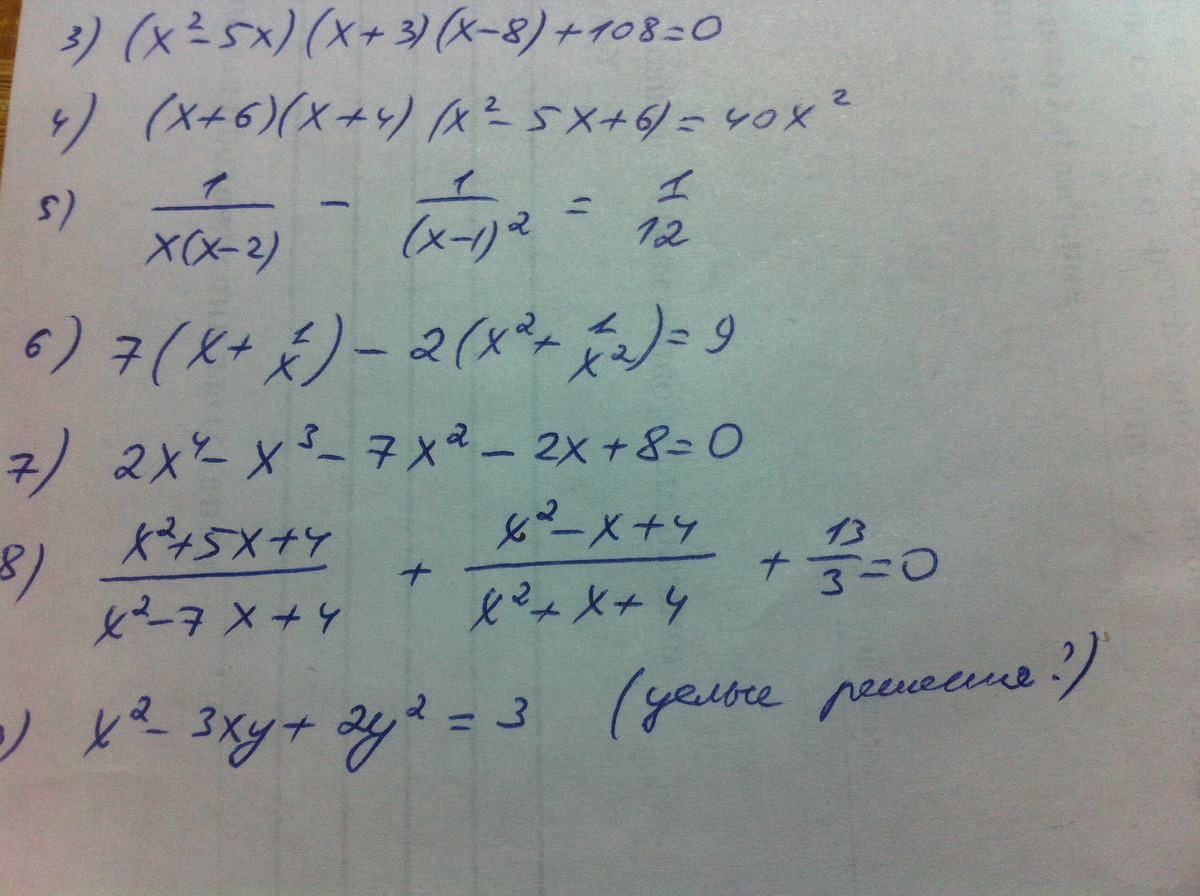 3) (x²-5x)(x+3)(x-8)+108=0
4) (x+6)(x+4)(x²-5x+6)=40x²
5) 1/(x(x-2)) - 1/(x-1)² = 1/12
6) 7(x+1/x)-2(x²+1/x²)=9
7) 2x⁴-x³-7x²-2x+8=0
8) (x²+5x+4)/(x²-7x+4) + (x²-x+4)/(x²+x+4) + 13/3=0
) x²-3xy+2y²=3 (целые решения?)